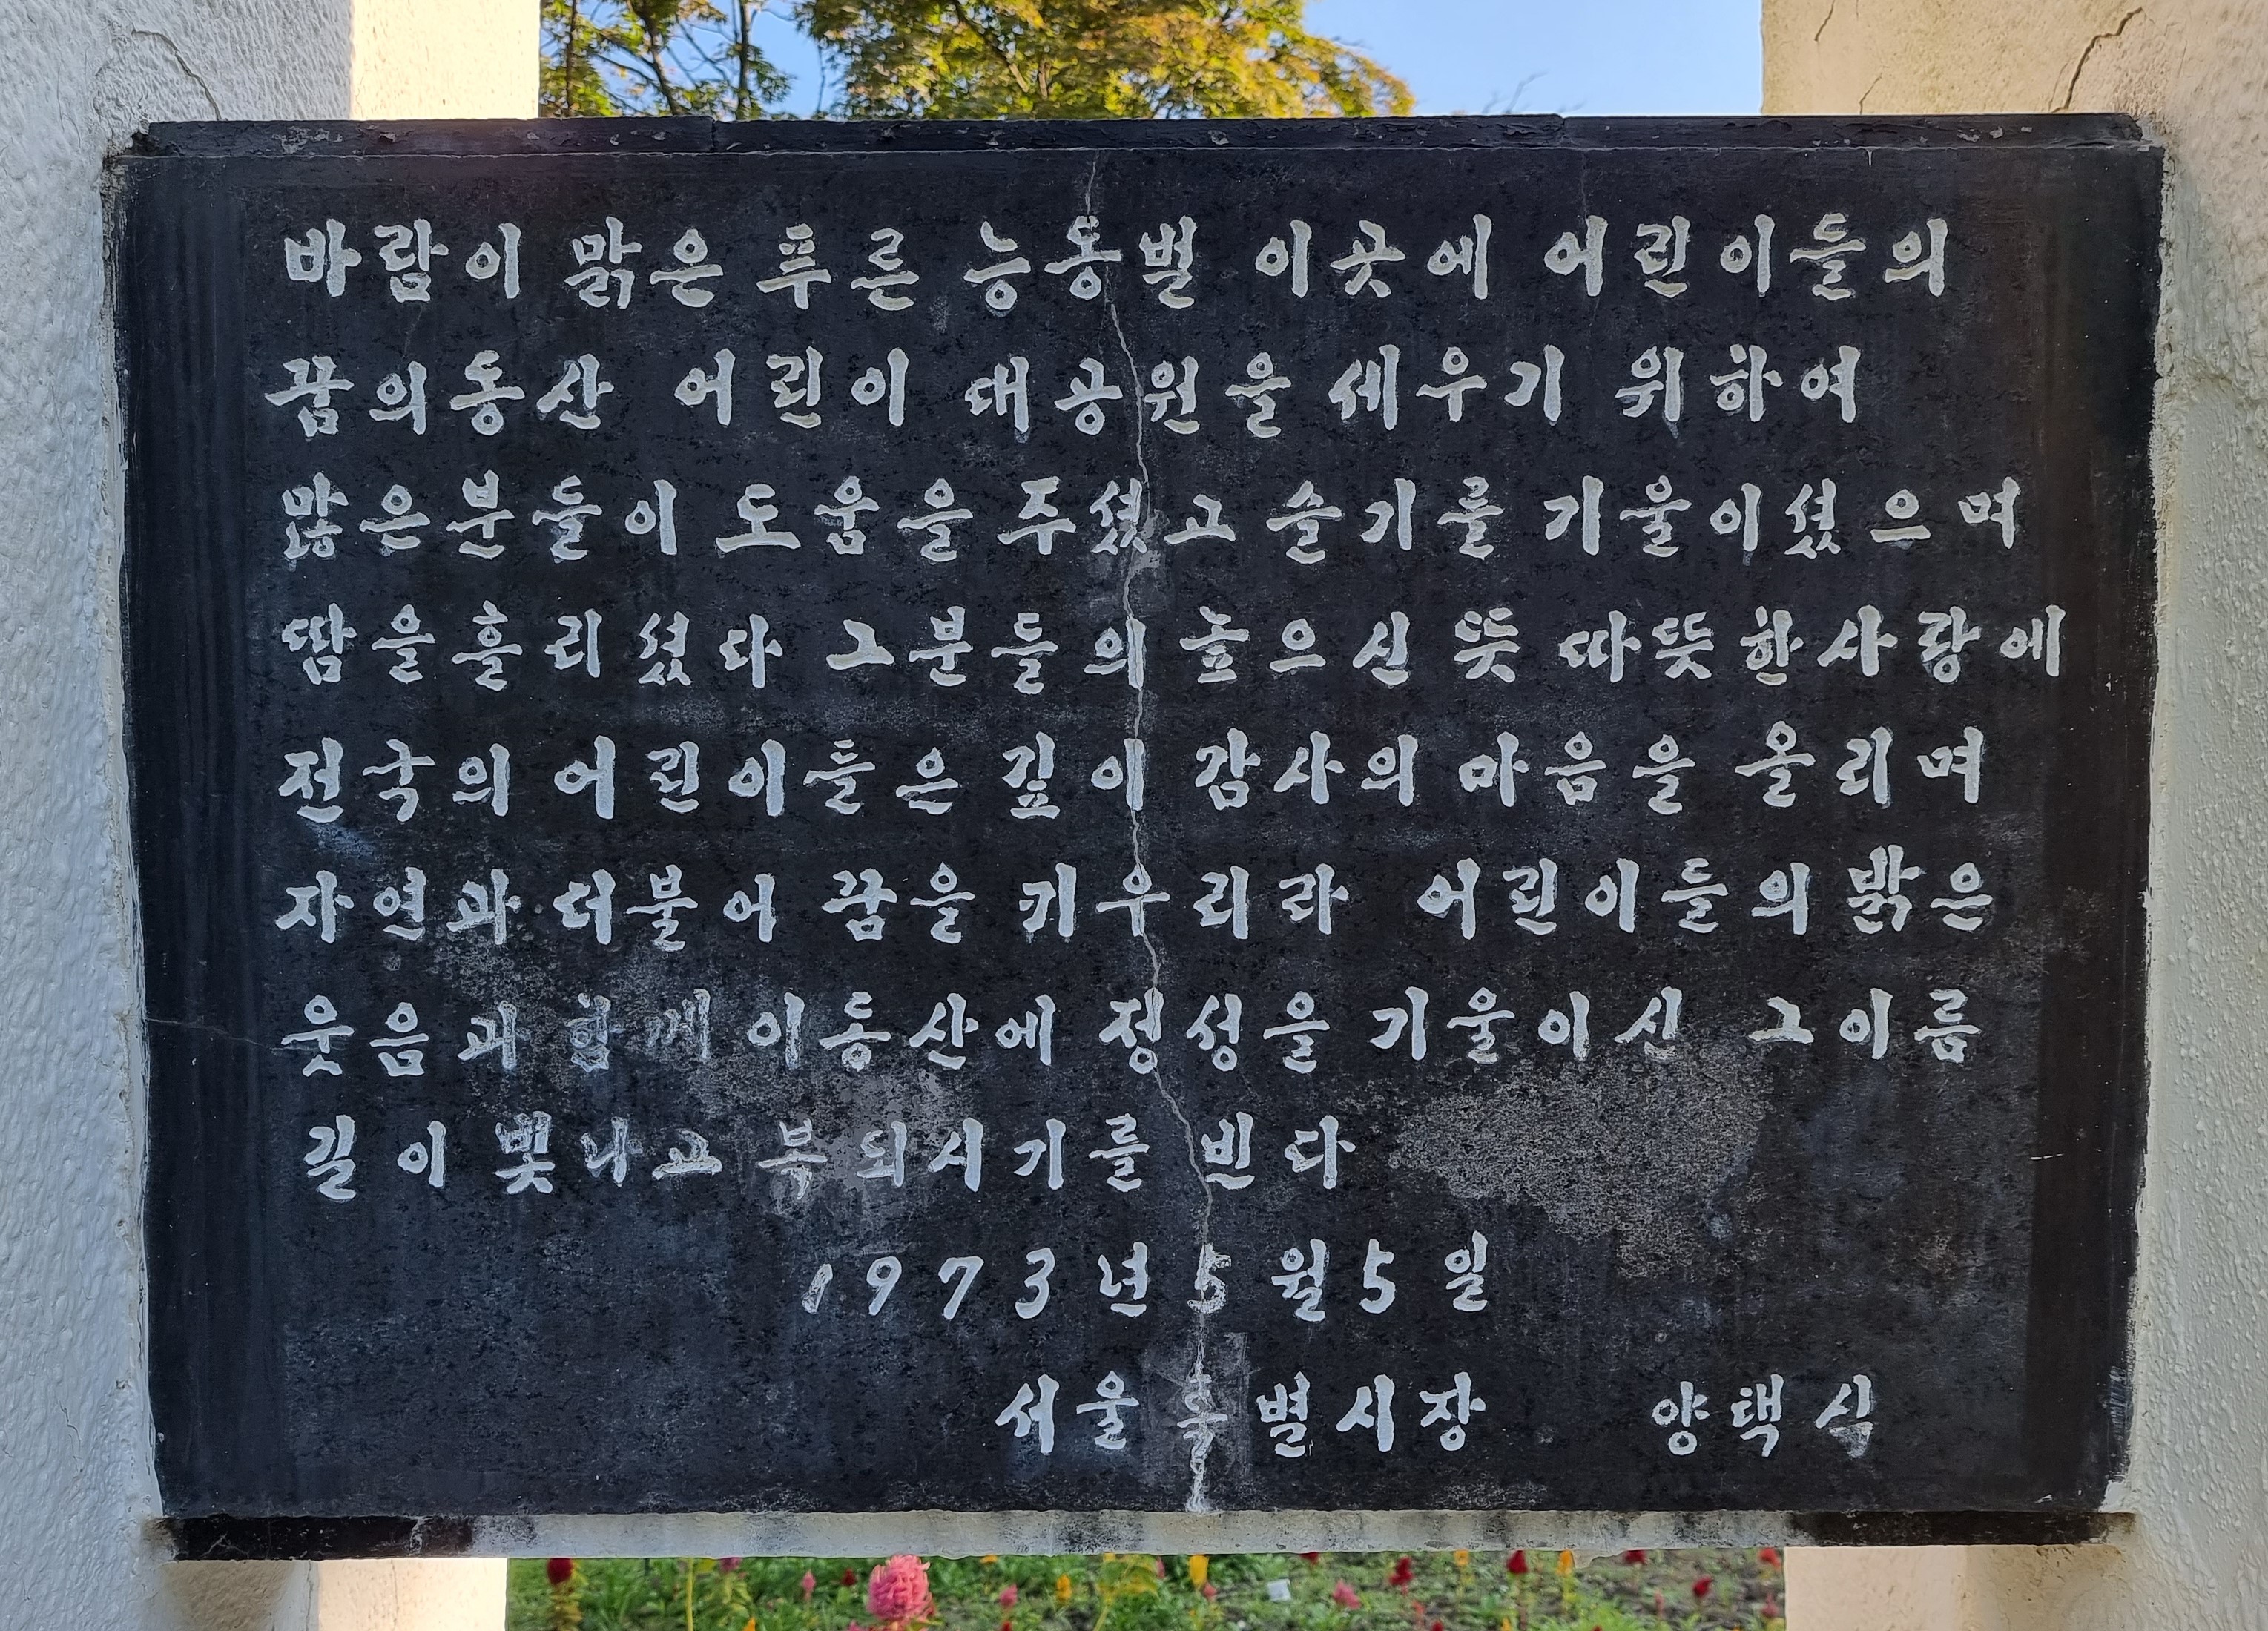 바람이 맑은 푸른 능동벌 이곳에 어린이들의
꿈의동산 어린이 대공원을 세우기 위하여
많은분들이 도움을 주셨고 슬기를 기울이셨으며
땀을흘리셨다 그분들의 높으신 뜻 따뜻한사랑에
전국의 어린이들은 깊이 감사의 마음을 올리며
자연과 더불어 꿈을 키우리라 어린이들의 밝은
웃음과 함께 이동산에 정성을 기울이신 그이름
길이 빛나고 복되시기를 빈다
1973년 5월 5일
서울특별시장 양택식